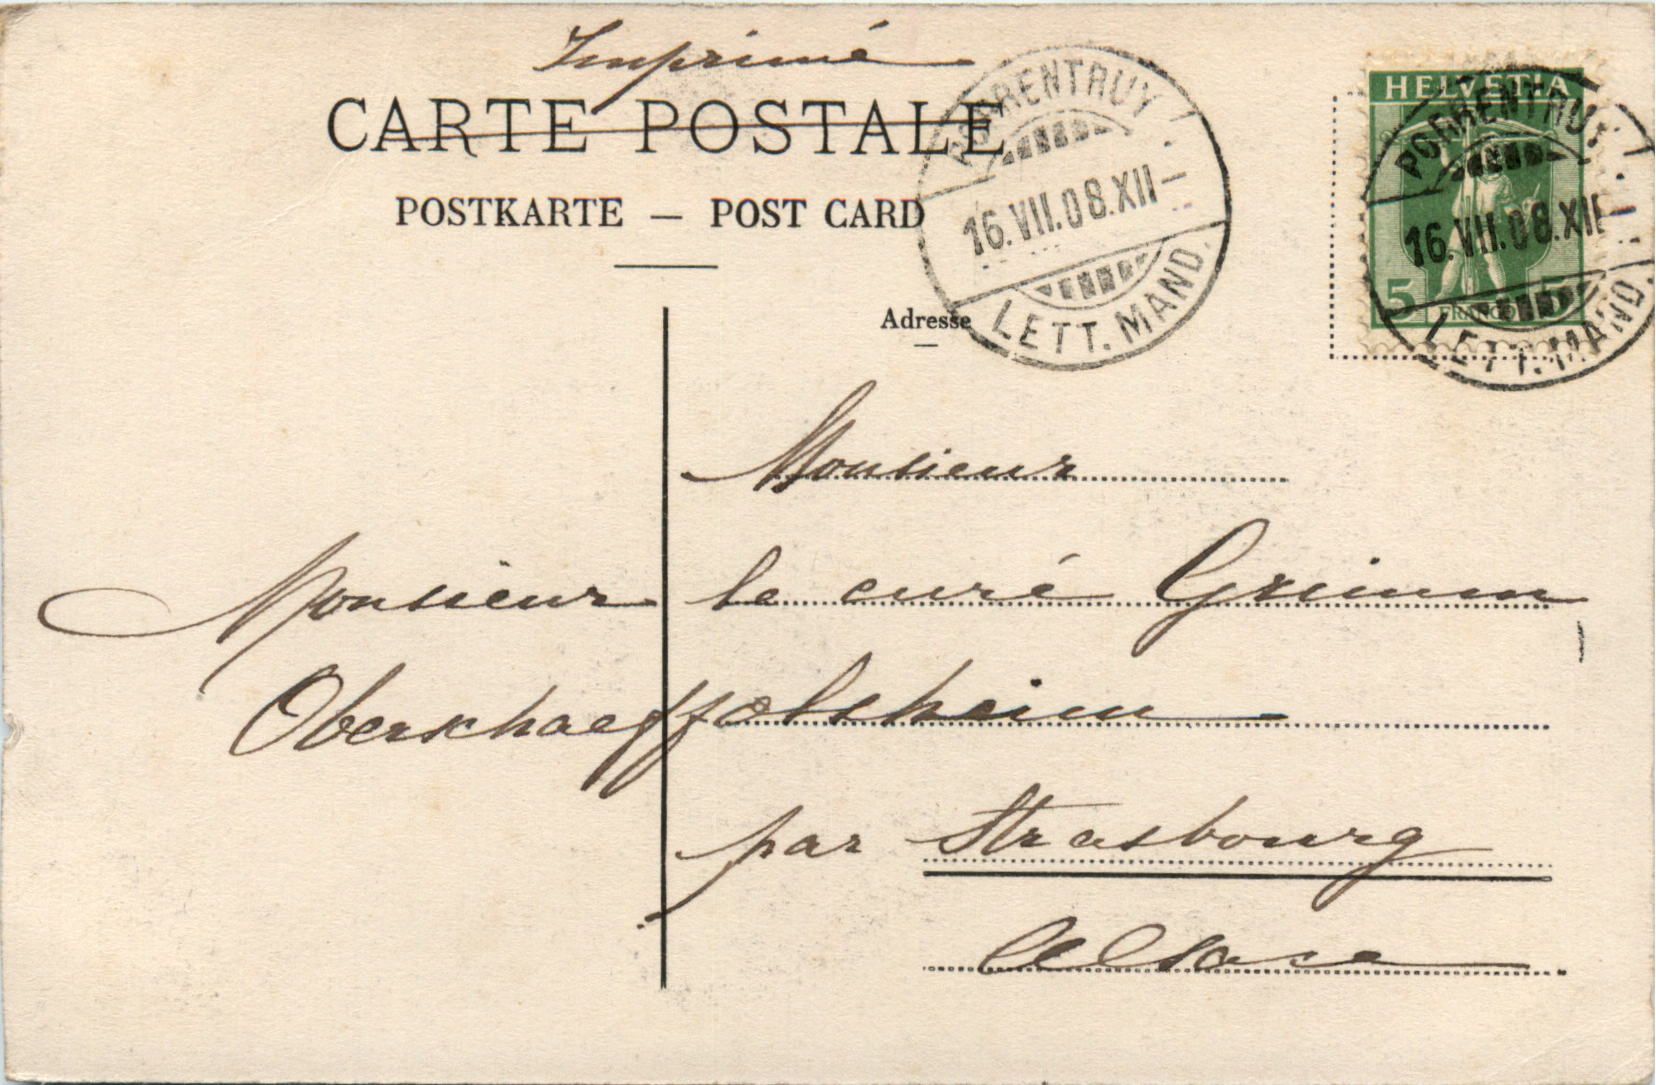 Imprimé
CARTE POSTALE
POSTKARTE — POST CARD
Adresse
PORRENTRUY
16.VII.08.XII—
LETT. MAND.
HELVETIA
5 FRANCO 5
PORRENTRUY
16.VII.08.XII
LETT. MAND.
Monsieur
Monsieur le curé Grimm
Oberschaeffolsheim
par Strasbourg
Alsace